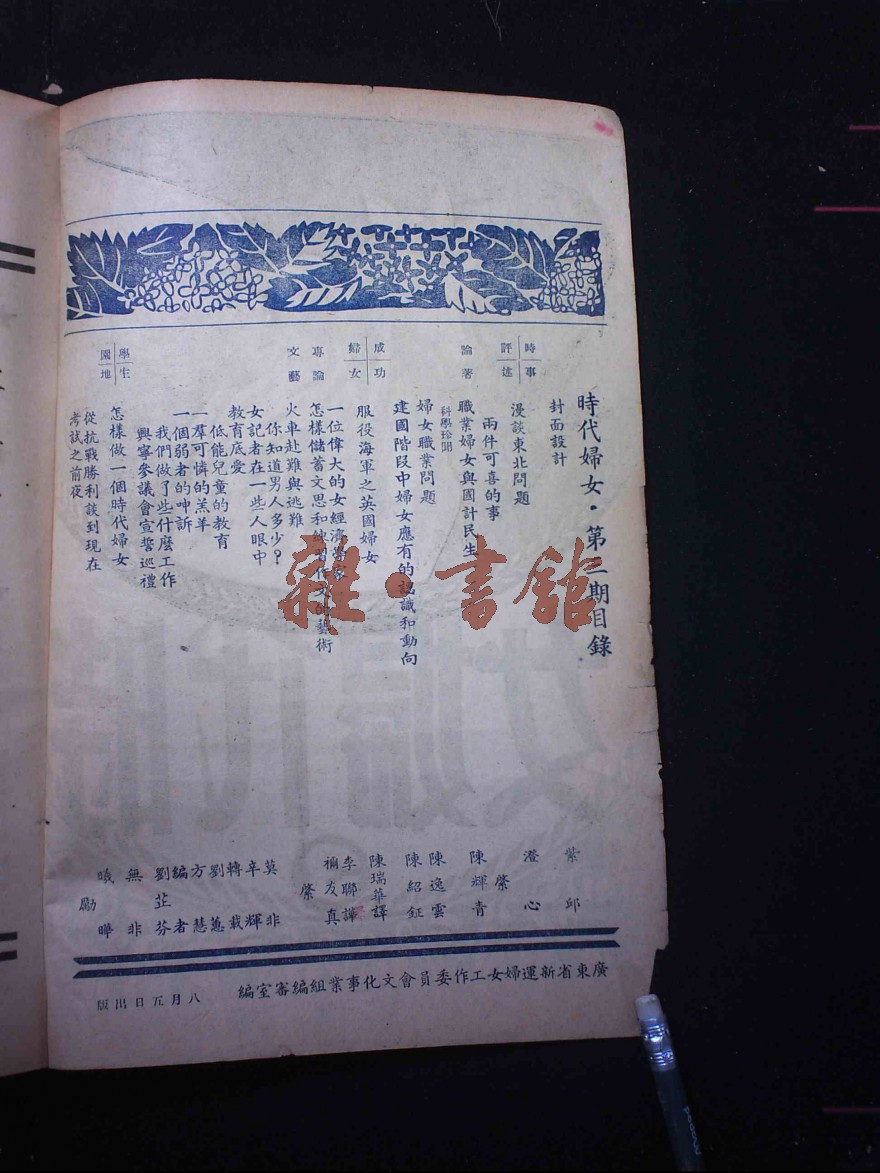 時代婦女·第二期目錄
封面設計
紫邱
時事評述
漫談東北問題
澄心
兩件可喜的事
縈
論著
職業婦女與國計民生
陳輝青
科學珍聞
婦女職業問題
陳逸雲
建國階段中婦女應有的認識和動向
陳紹鉦
成功婦女
服役海軍之英國婦女
陳瑞華譯
一位偉大的女經濟學家
李聯譯
專論
怎樣儲蓄文思和練習作文的藝術
禰友真
文藝
火車赴難與逃難
縈
你知道男人多少？
莫非
女記者在一些人眼中
辛輝
教育底愛
轉載
低能兒童的教育
劉蕙
一羣可憐的羔羊
方慧
一個弱者的呻訴
編者
我們做了些什麼工作
劉芷芬
興寧參議會宣誓巡禮
學生園地
怎樣做一個時代婦女
無非
從抗戰勝利談到現在
曦曄
考試之前夜
勵
廣東省新運婦女工作委員會文化事業組編審室編
八月五日出版
雜·書館